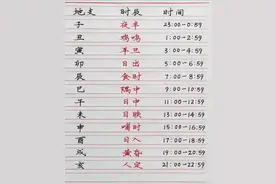 地支 时辰 时间
子 夜半 23:00-0:59
丑 鸡鸣 1:00-2:59
寅 平旦 3:00-4:59
卯 日出 5:00-6:59
辰 食时 7:00-8:59
巳 隅中 9:00-10:59
午 日中 11:00-12:59
未 日昳 13:00-14:59
申 晡时 15:00-16:59
酉 日入 17:00-18:59
戌 黄昏 19:00-20:59
亥 人定 21:00-22:59